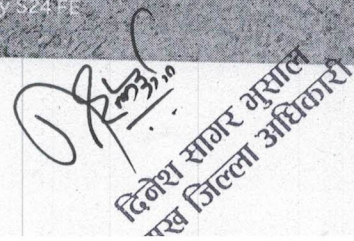 y S24 FE
दिनेश सागर भुसाल
मुख जिल्ला अधिकारी